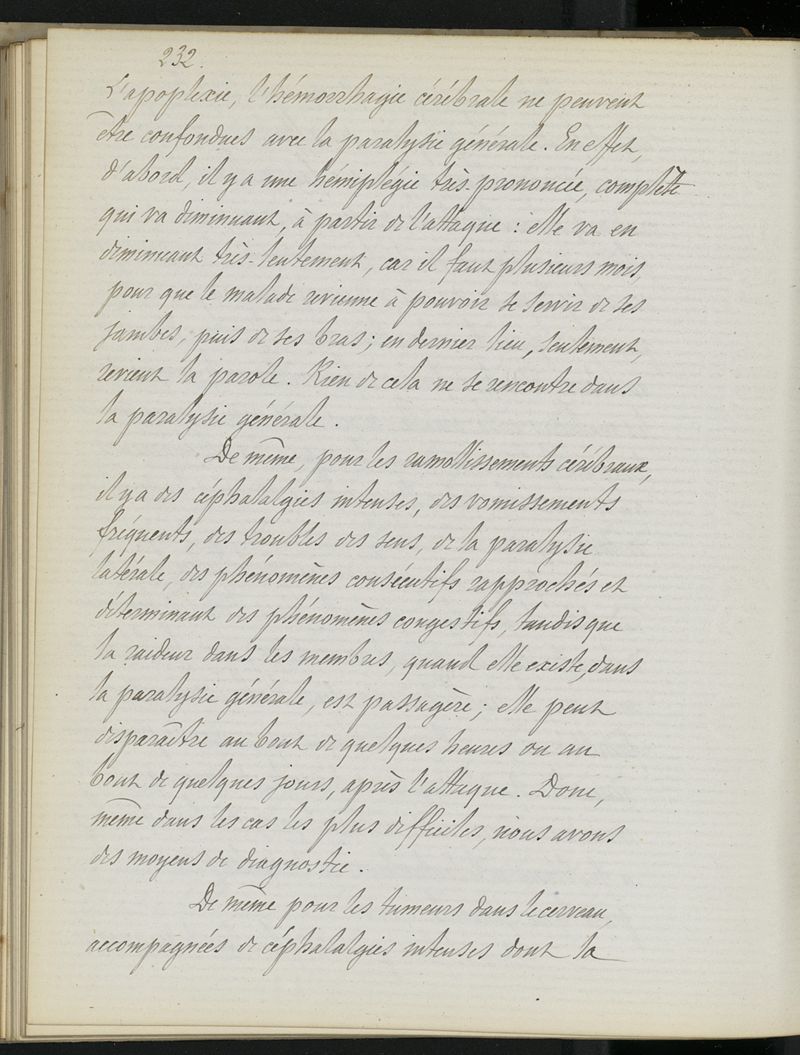 232.
L'apoplexie, l'hémorrhagie cérébrale ne peuvent
être confondues avec la paralysie générale. En effet,
d'abord, il y a une hémiplégie très-prononcée, complète
qui va diminuant, à partir de l'attaque : elle va en
diminuant très-lentement, car il faut plusieurs mois,
pour que le malade revienne à pouvoir se servir de ses
jambes, puis de ses bras ; en dernier lieu, seulement,
revient la parole. Rien de cela ne se rencontre dans
la paralysie générale.
De même, pour les ramollissements cérébraux,
il y a des céphalalgies intenses, des vomissements
fréquents, des troubles des sens, de la paralysie
latérale, des phénomènes consécutifs rapprochés et
déterminant des phénomènes congestifs, tandis que
la raideur dans les membres, quand elle existe, dans
la paralysie générale, est passagère ; elle peut
disparaître au bout de quelques heures ou au
bout de quelques jours, après l'attaque. Donc,
même dans les cas les plus difficiles, nous avons
des moyens de diagnostic.
De même pour les tumeurs dans le cerveau,
accompagnées de céphalalgies intenses dont la